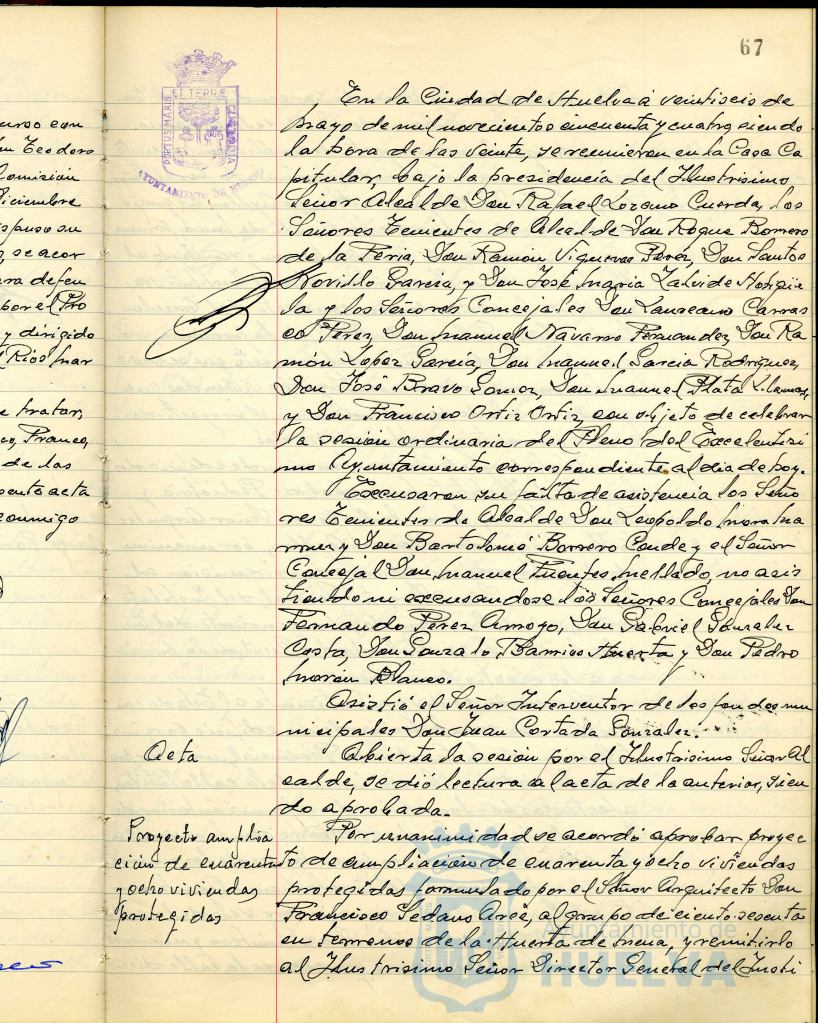 67
ET TERRÆ
PORTUS MARIS
CUSTODIA
AYUNTAMIENTO DE
urso con
n Teodoro
omisión
iciembre
spuso su
, se acor
ara defen
por el Pro
y dirigido
l Ríos Mar
e tratar,
co, Franco,
de las
sento acta
conmigo
En la Ciudad de Huelva a veintiseis de
Mayo de mil novecientos cincuenta y cuatro, siendo
la hora de las veinte, se reunieron en la Casa Ca
pitular, bajo la presidencia del Ilustrisimo
Señor Alcalde Don Rafael Lozano Cuerda, los
Señores Tenientes de Alcalde Don Roque Borrero
de la Feria, Don Ramón Vigueras Perez, Don Santos
Novillo Garcia, y Don José Maria Zalvide
la y los Señores Concejales Don Laureano Carras
co Perez, Don Manuel Navarro Fernandez, Don Ra
món Lopez García, Don Manuel Garcia Rodriguez,
Don José Bravo Gomez, Don Manuel Plata Llamas,
y Don Francisco Ortiz Ortiz, con objeto de celebrar
la sesión ordinaria del Pleno del Excelentisi
mo Ayuntamiento correspondiente al dia de hoy.
Excusaron su falta de asistencia los Seño
res Tenientes de Alcalde Don Leopoldo Mora
y Don Bartolomé Borrero Conde y el Señor
Concejal Don Manuel Fuentes Mellado, no asis
tiendo ni excusandose los Señores Concejales Don
Fernando Perez Arroyo, Don Gabriel Gonzalez
Costa, Don Gonzalo Barrios Huerta y Don Pedro
Morón Blanco.
Asistió el Señor Interventor de los fondos mu
nicipales Don Juan Cortada Gonzalez.
Acta
Abierta la sesión por el Ilustrisimo Señor Al
calde, se dió lectura al acta de la anterior, sien
do aprobada.
Proyecto amplia
ción de cuarenta
y ocho viviendas
protegidas
Por unanimidad se acordó aprobar proyec
to de ampliación de cuarenta y ocho viviendas
protegidas formulado por el Señor Arquitecto Don
Francisco Sedano Arce, al grupo de ciento sesenta
en terrenos de la Huerta de Mena, y remitirlo
al Ilustrisimo Señor Director General del Insti
Ayuntamiento de
HUELVA